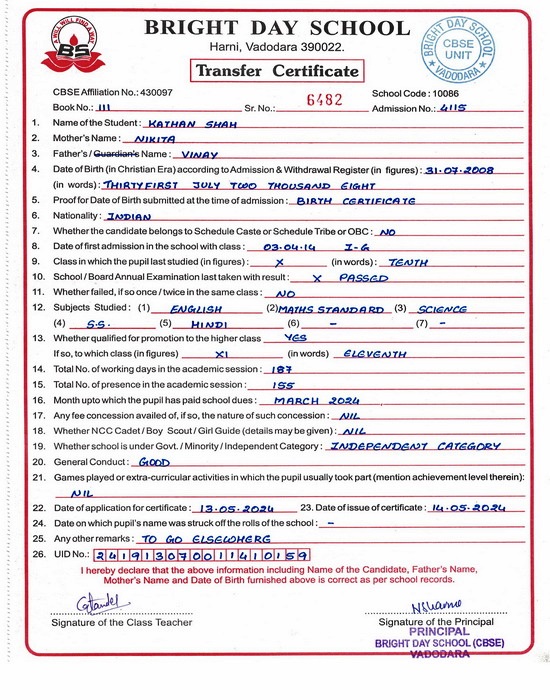 A WILL WILL FIND A WAY
BS
BRIGHT DAY SCHOOL
Harni, Vadodara 390022.
BRIGHT DAY SCHOOL
CBSE
UNIT
★ VADODARA ★
Transfer Certificate
CBSE Affiliation No.: 430097
School Code : 10086
Book No.: III Sr. No.: 6482 Admission No.: 4115
1. Name of the Student : KATHAN SHAH
2. Mother's Name : NIKITA
3. Father's / Guardian's Name : VINAY
4. Date of Birth (in Christian Era) according to Admission & Withdrawal Register (in figures) : 31.07.2008
(in words) : THIRTYFIRST JULY TWO THOUSAND EIGHT
5. Proof for Date of Birth submitted at the time of admission : BIRTH CERTIFICATE
6. Nationality : INDIAN
7. Whether the candidate belongs to Schedule Caste or Schedule Tribe or OBC : NO
8. Date of first admission in the school with class : 03.04.14 I-G
9. Class in which the pupil last studied (in figures) : X (in words) : TENTH
10. School / Board Annual Examination last taken with result : X PASSED
11. Whether failed, if so once / twice in the same class : NO
12. Subjects Studied : (1) ENGLISH (2) MATHS STANDARD (3) SCIENCE
(4) S.S. (5) HINDI (6) - (7) -
13. Whether qualified for promotion to the higher class YES
If so, to which class (in figures) XI (in words) ELEVENTH
14. Total No. of working days in the academic session : 187
15. Total No. of presence in the academic session : 155
16. Month upto which the pupil has paid school dues : MARCH 2024
17. Any fee concession availed of, if so, the nature of such concession : NIL
18. Whether NCC Cadet / Boy Scout / Girl Guide (details may be given) : NIL
19. Whether school is under Govt. / Minority / Independent Category : INDEPENDENT CATEGORY
20. General Conduct : GOOD
21. Games played or extra-curricular activities in which the pupil usually took part (mention achievement level therein):
NIL
22. Date of application for certificate : 13.05.2024 23. Date of issue of certificate : 14.05.2024
24. Date on which pupil's name was struck off the rolls of the school : -
25. Any other remarks : TO GO ELSEWHERE
26. UID No.: 241913070011410159
I hereby declare that the above information including Name of the Candidate, Father's Name,
Mother's Name and Date of Birth furnished above is correct as per school records.
Signature of the Class Teacher
Signature of the Principal
PRINCIPAL
BRIGHT DAY SCHOOL (CBSE)
VADODARA